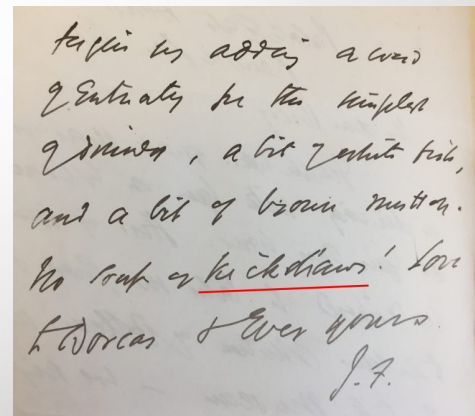 begin by adding a word
of entreaty for the simplest
of dinners, a bit of white fish,
and a bit of brown mutton.
No soup or kickshaws! Love
to Dorcas & Ever yours
J.F.